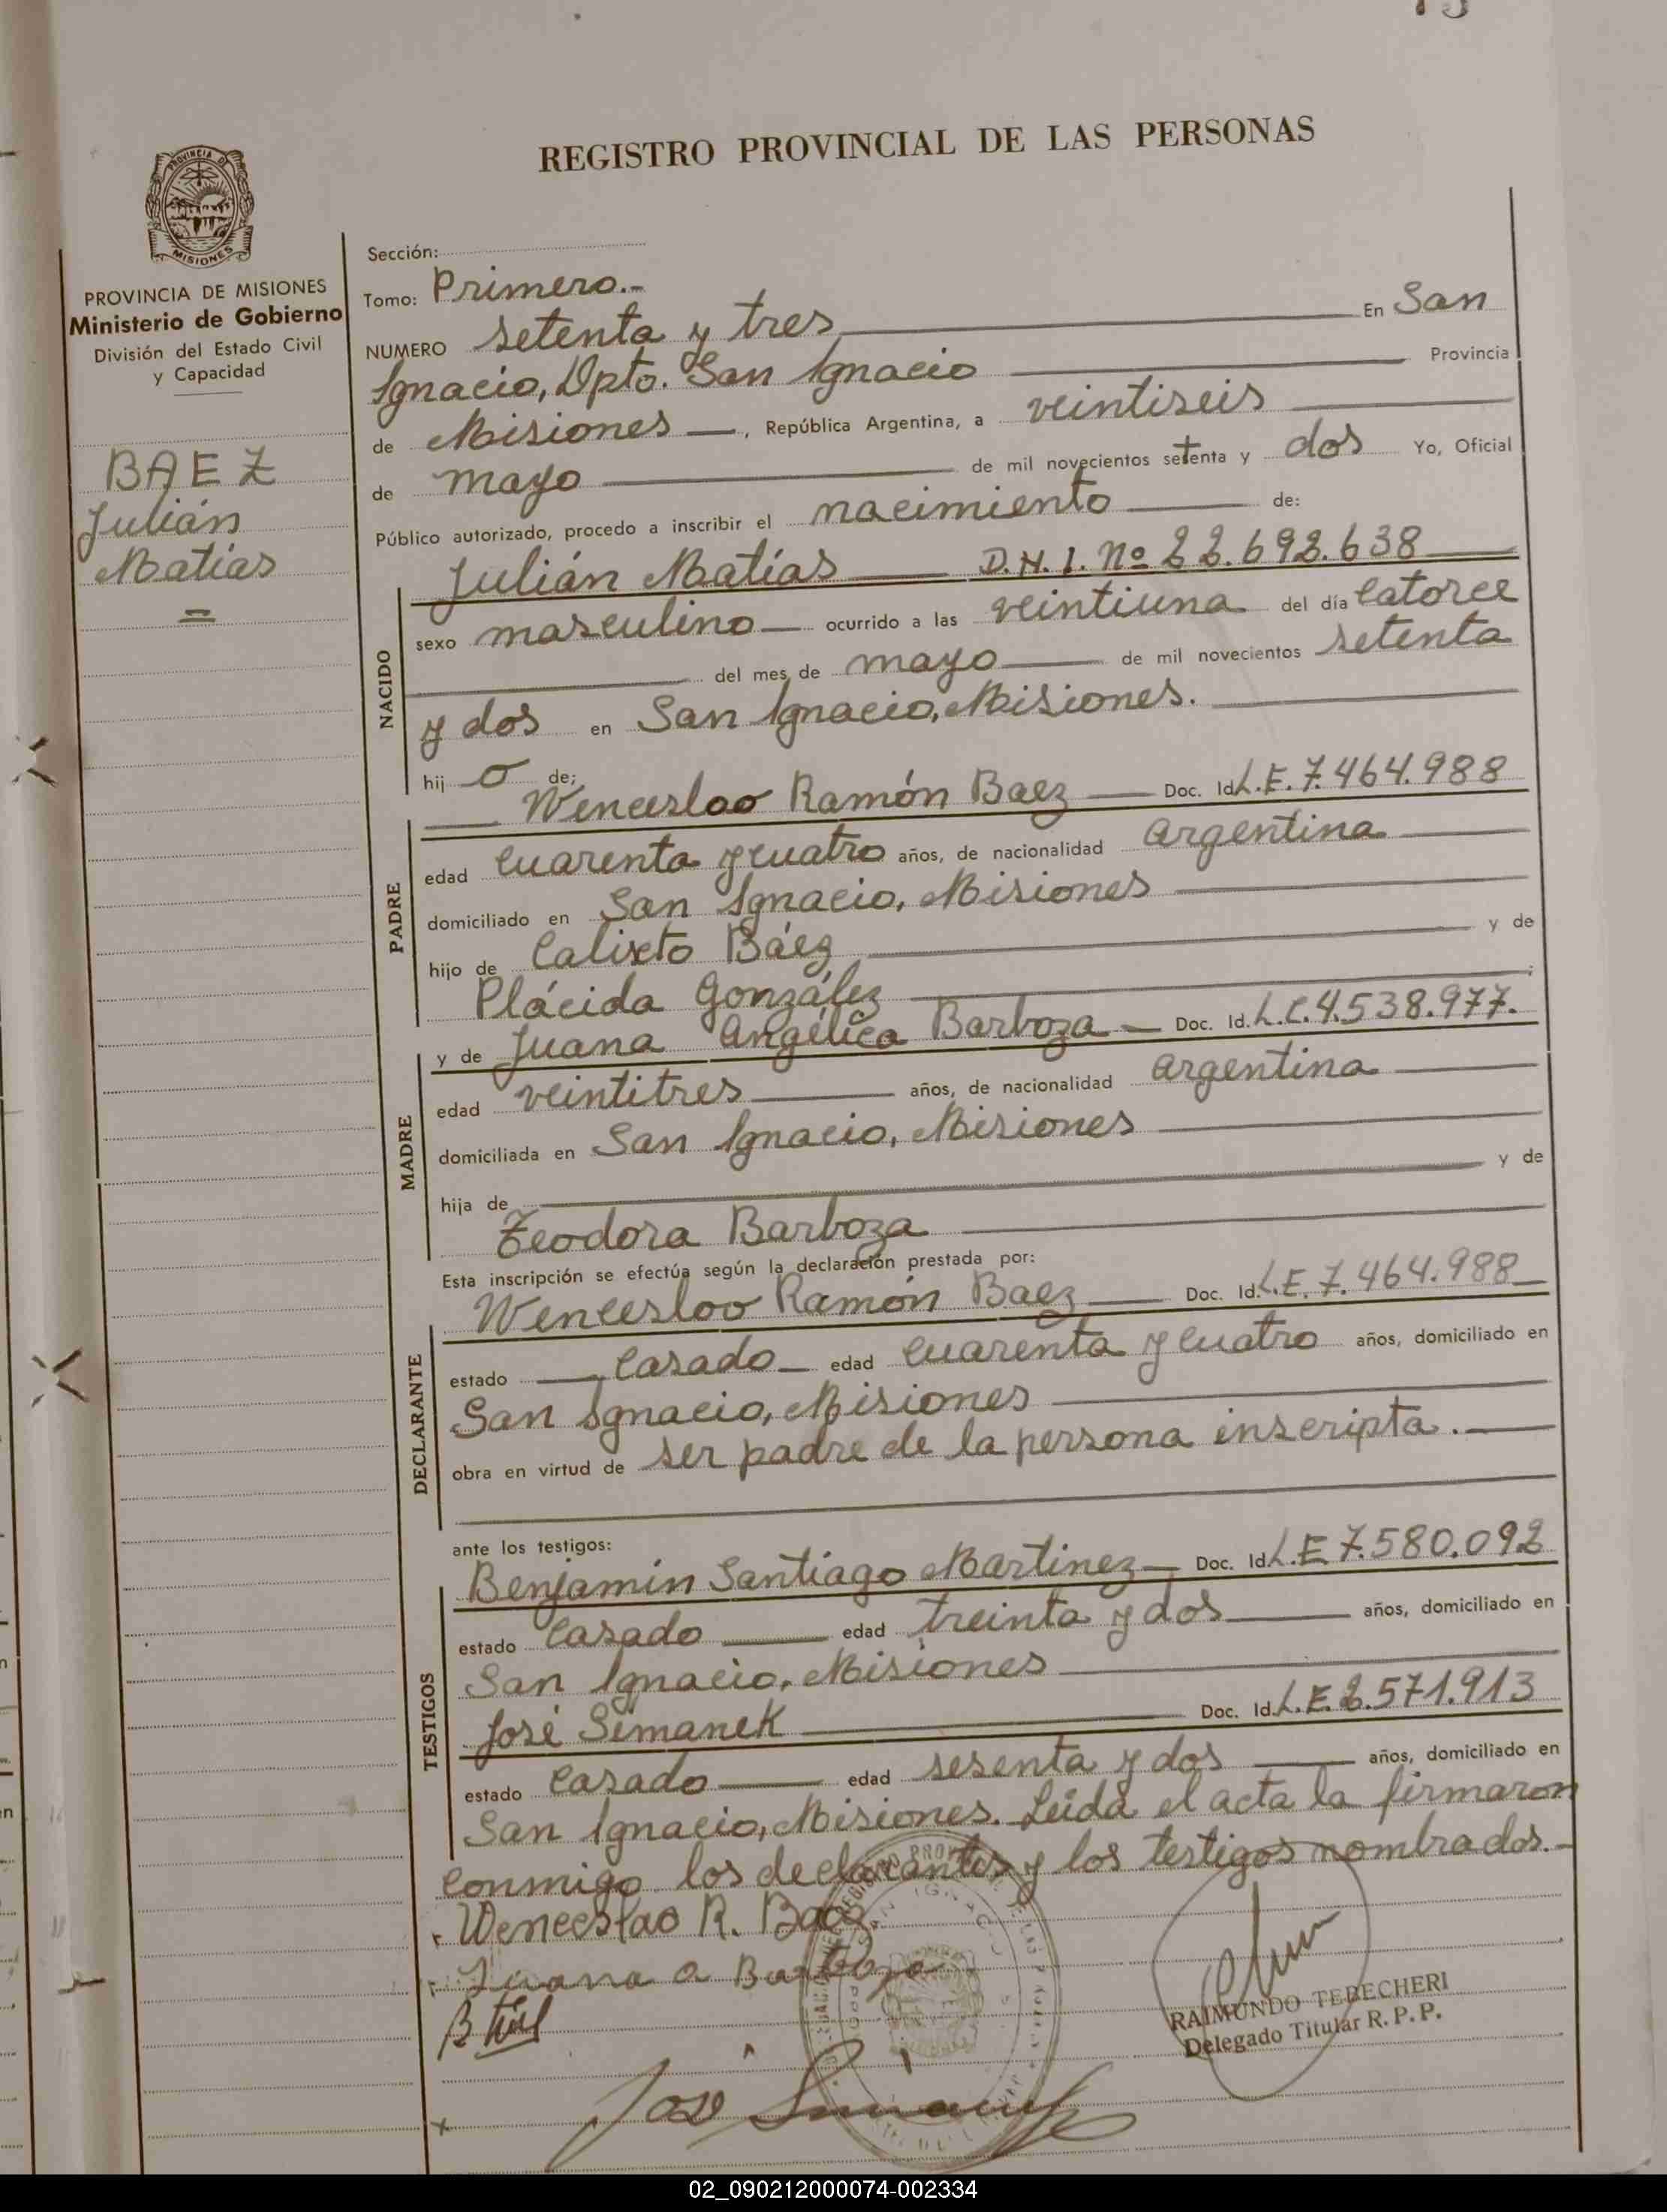 REGISTRO PROVINCIAL DE LAS PERSONAS
PROVINCIA DE
MISIONES
PROVINCIA DE MISIONES
Ministerio de Gobierno
División del Estado Civil
y Capacidad
BAEZ
Julián
Matías
Sección:
Tomo: Primero.-
NUMERO setenta y tres En San
Ignacio, Dpto. San Ignacio Provincia
de Misiones, República Argentina, a veintiseis
de mayo de mil novecientos setenta y dos Yo, Oficial
Público autorizado, procedo a inscribir el nacimiento de:
NACIDO
Julián Matías D.N.I. Nº 22.692.638
sexo masculino ocurrido a las veintiuna del día catorce
del mes de mayo de mil novecientos setenta
y dos en San Ignacio, Misiones.
hijo de:
PADRE
Wenceslao Ramón Baez Doc. Id. L.E. 7.464.988
edad cuarenta y cuatro años, de nacionalidad argentina
domiciliado en San Ignacio, Misiones
hijo de Calixto Báez y de
Plácida González ;
MADRE
y de Juana Angélica Barboza Doc. Id. L.C. 4.538.977.
edad veintitres años, de nacionalidad argentina
domiciliada en San Ignacio, Misiones
hija de y de
Teodora Barboza
Esta inscripción se efectúa según la declaración prestada por:
DECLARANTE
Wenceslao Ramón Baez Doc. Id. L.E. 7.464.988
estado casado edad cuarenta y cuatro años, domiciliado en
San Ignacio, Misiones
obra en virtud de ser padre de la persona inscripta.
ante los testigos:
TESTIGOS
Benjamín Santiago Martinez Doc. Id. L.E 7.580.092
estado casado edad treinta y dos años, domiciliado en
San Ignacio, Misiones
José Simanek Doc. Id. L.E. 2.571.913
estado casado edad sesenta y dos años, domiciliado en
San Ignacio, Misiones. Leída el acta la firmaron
conmigo los declarantes y los testigos nombrados.-
Wenceslao R. Baez
Juana a Barboza
José
SAN IGNACIO
RAIMUNDO TEBECHERI
Delegado Titular R. P. P.
02_090212000074-002334